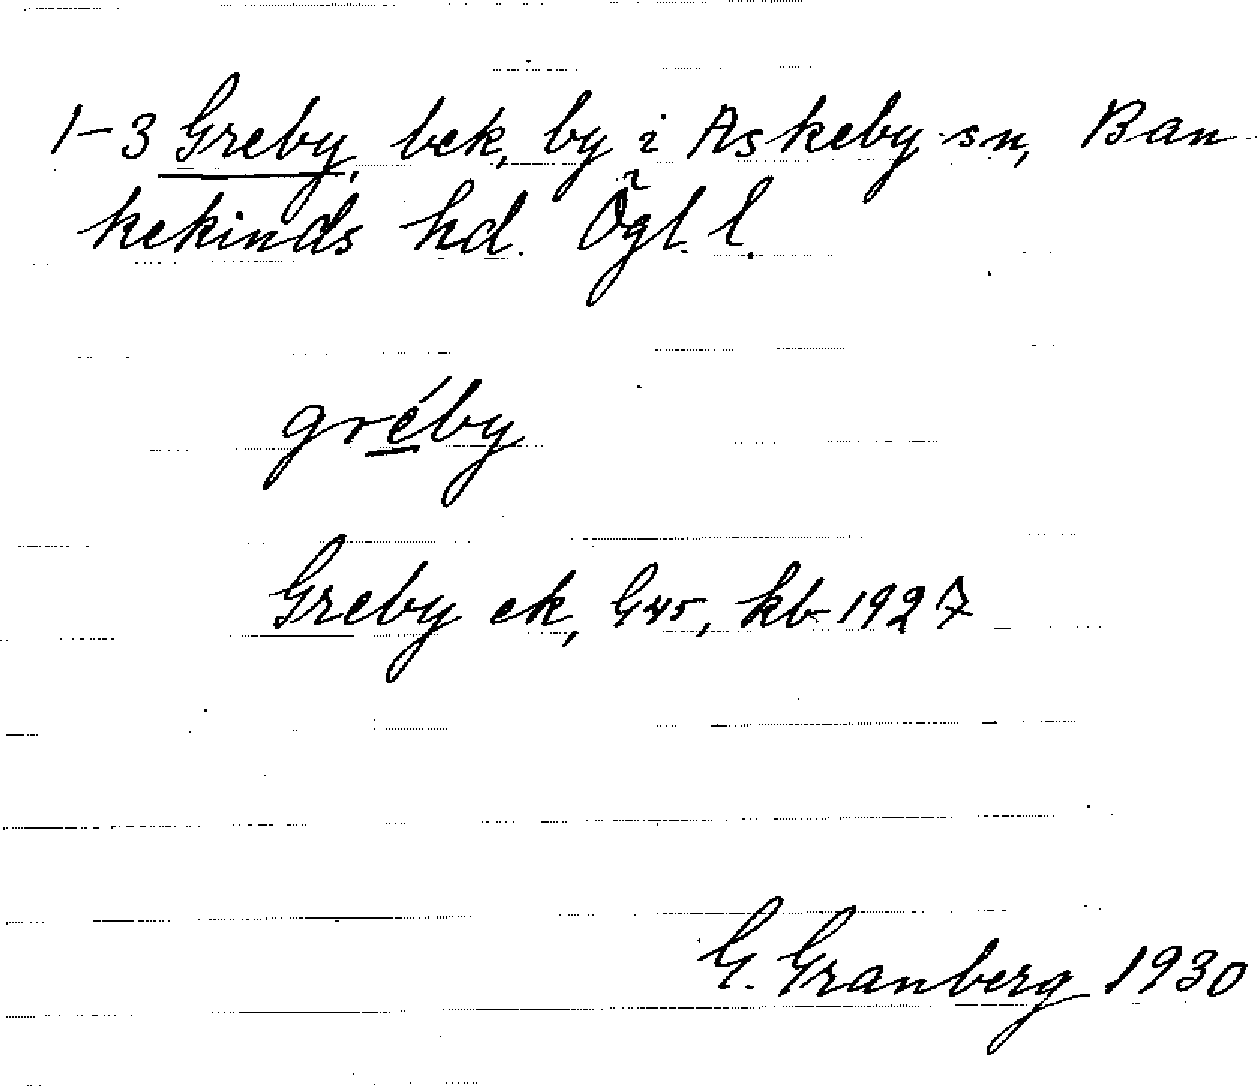 1–3 Greby, bek, by i Askeby sn, Ban
kekinds hd. Ögl. l.
gréby
Greby ek, G45, kb 1927
G. Granberg 1930